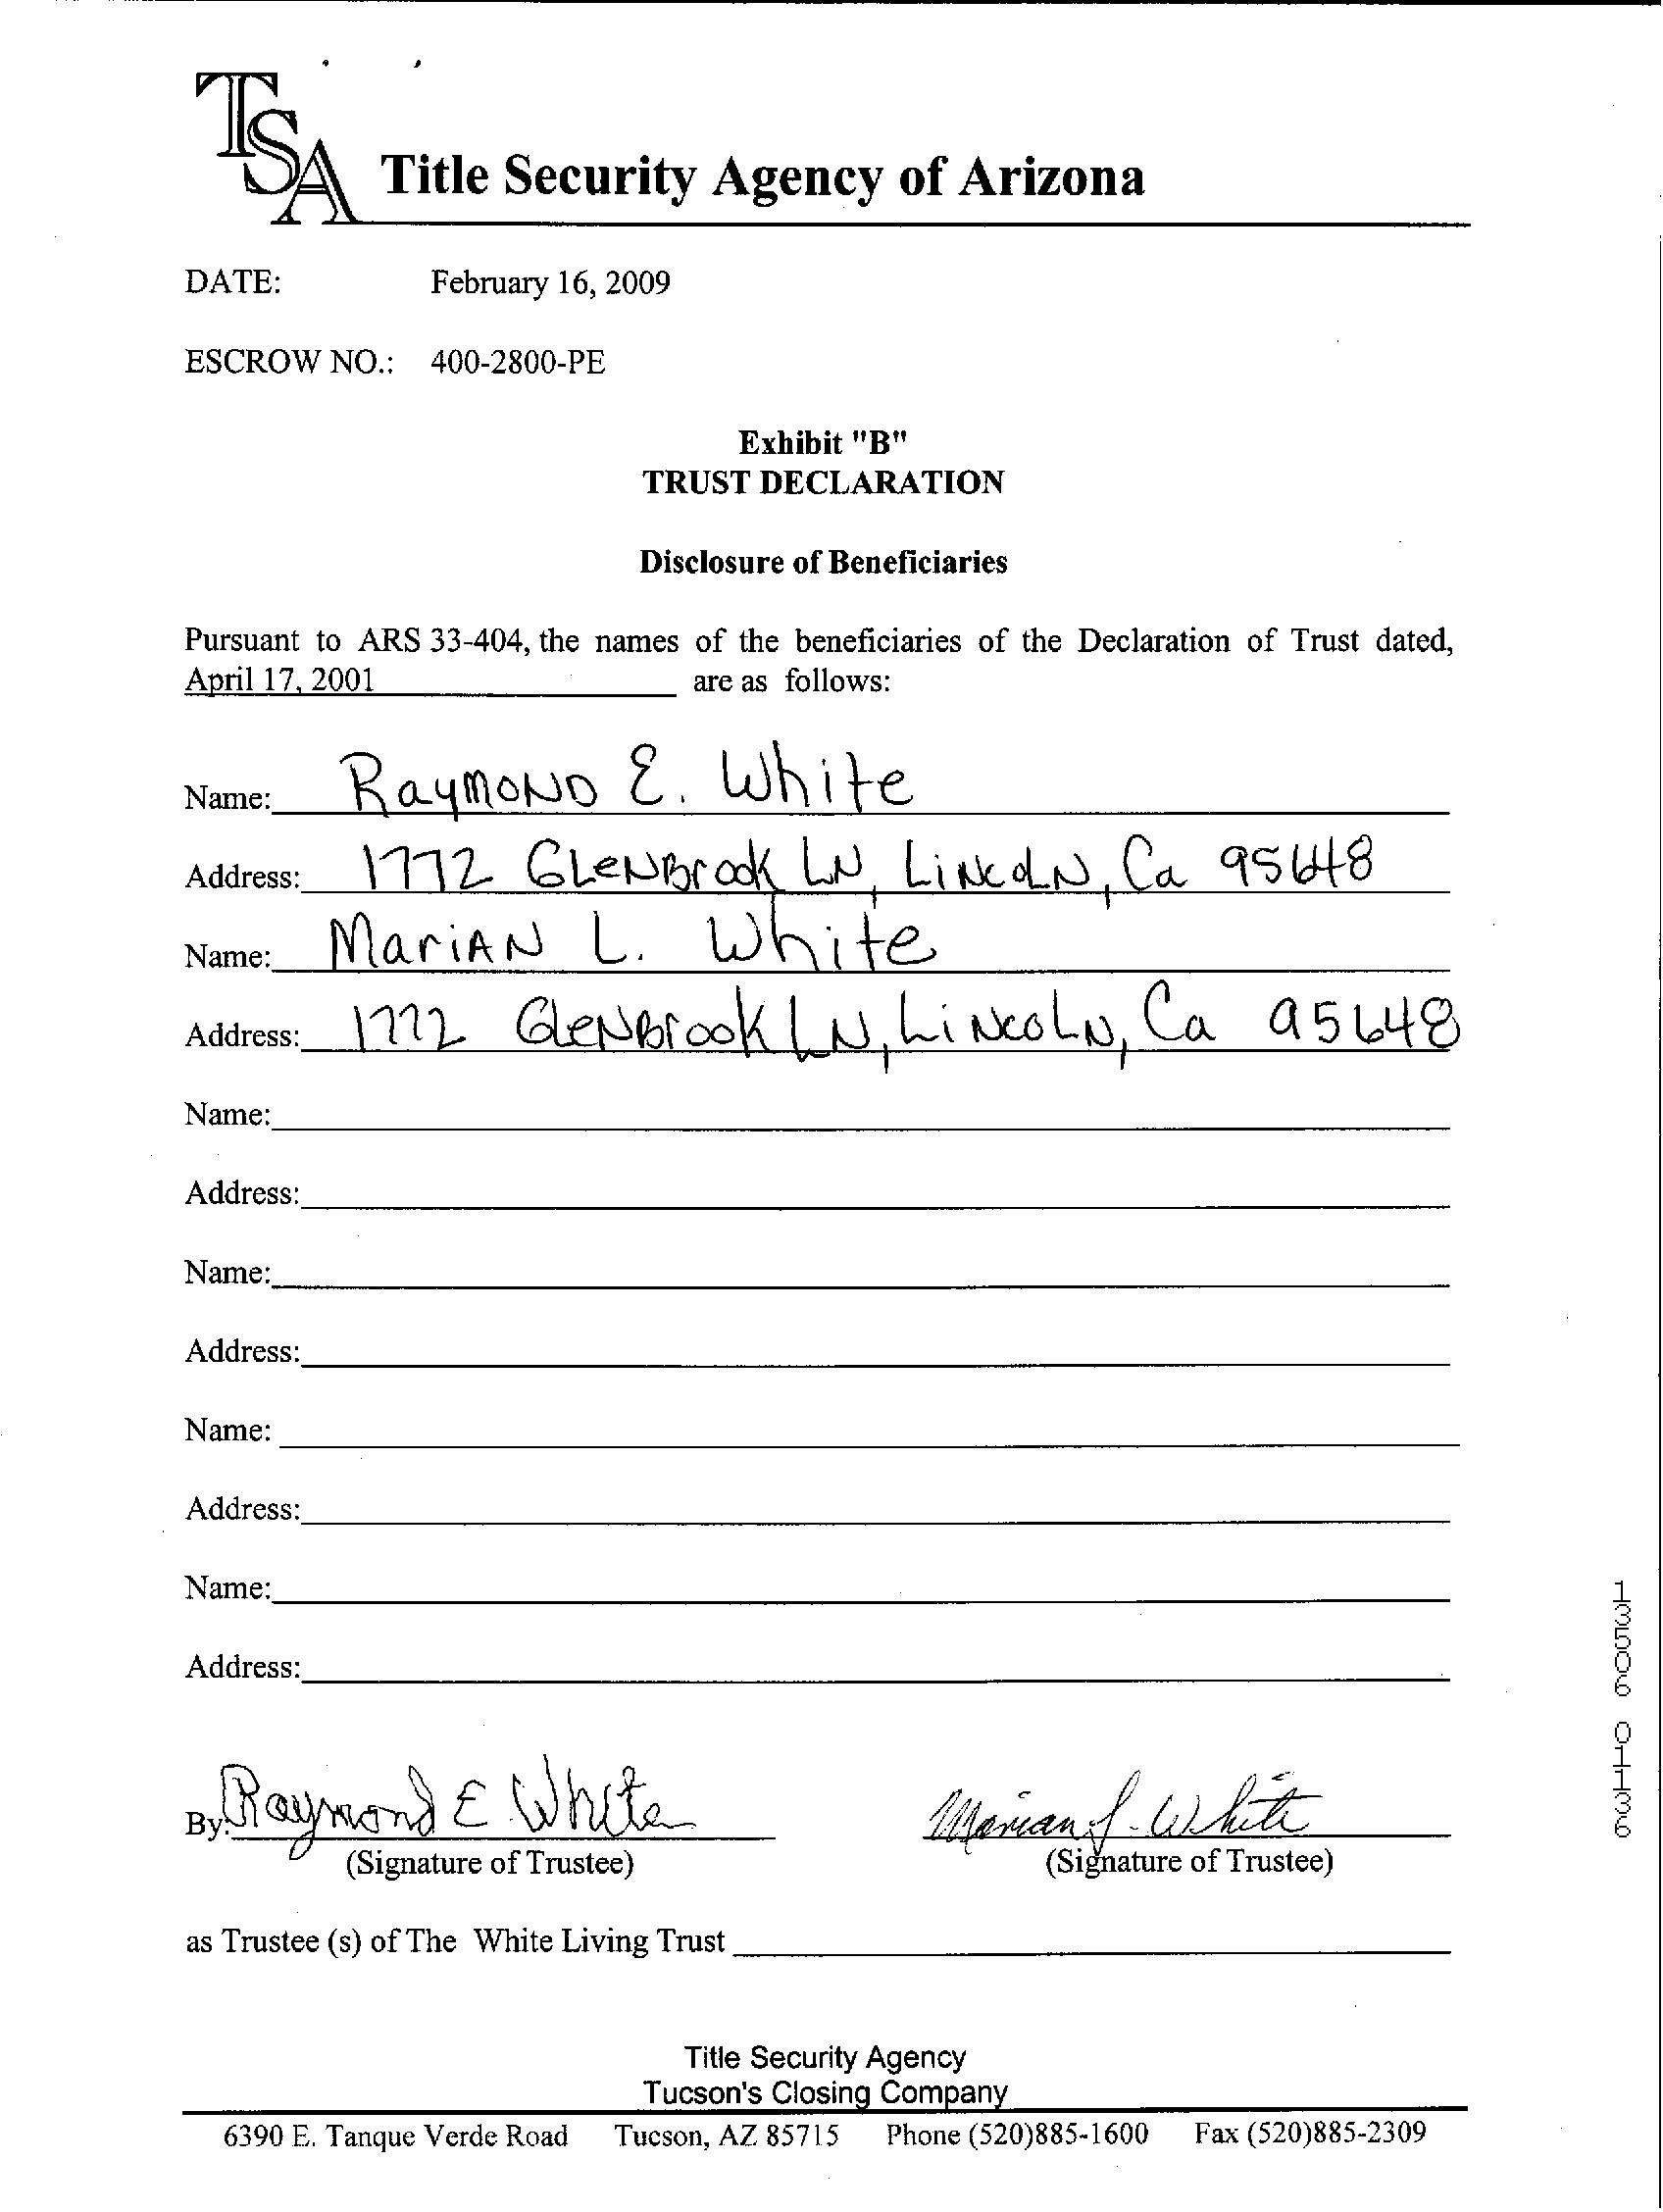 TSA Title Security Agency of Arizona
DATE: February 16, 2009
ESCROW NO.: 400-2800-PE
Exhibit "B"
TRUST DECLARATION
Disclosure of Beneficiaries
Pursuant to ARS 33-404, the names of the beneficiaries of the Declaration of Trust dated,
April 17, 2001 are as follows:
Name: Raymond E. White
Address: 1772 Glenbrook LN, Lincoln, Ca 95648
Name: Marian L. White
Address: 1772 Glenbrook LN, Lincoln, Ca 95648
Name:
Address:
Name:
Address:
Name:
Address:
Name:
Address:
By: Raymond E White Marian L. White
(Signature of Trustee) (Signature of Trustee)
as Trustee (s) of The White Living Trust
Title Security Agency
Tucson's Closing Company
6390 E. Tanque Verde Road Tucson, AZ 85715 Phone (520)885-1600 Fax (520)885-2309
13506 01136